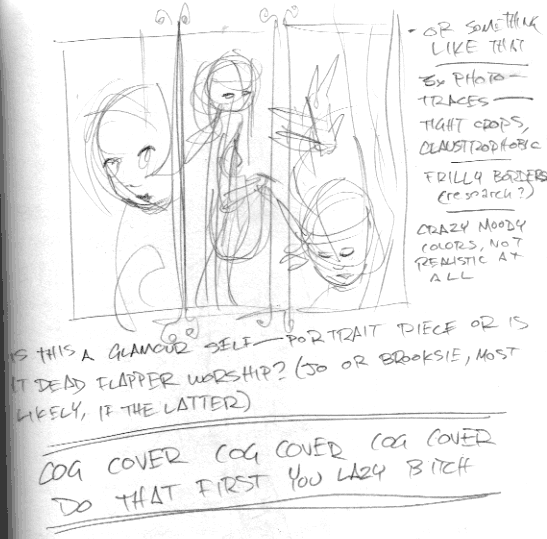 - OR SOMETHING
LIKE THAT
5x PHOTO-
TRACES —
TIGHT CROPS,
CLAUSTROPHOBIC
FRILLY BORDERS
(research?)
CRAZY MOODY
COLORS, NOT
REALISTIC AT
ALL
IS THIS A GLAMOUR SELF-PORTRAIT PIECE OR IS
IT DEAD FLAPPER WORSHIP? (JO OR BROOKSIE, MOST
LIKELY, IF THE LATTER)
COG COVER COG COVER COG COVER
DO THAT FIRST YOU LAZY BITCH